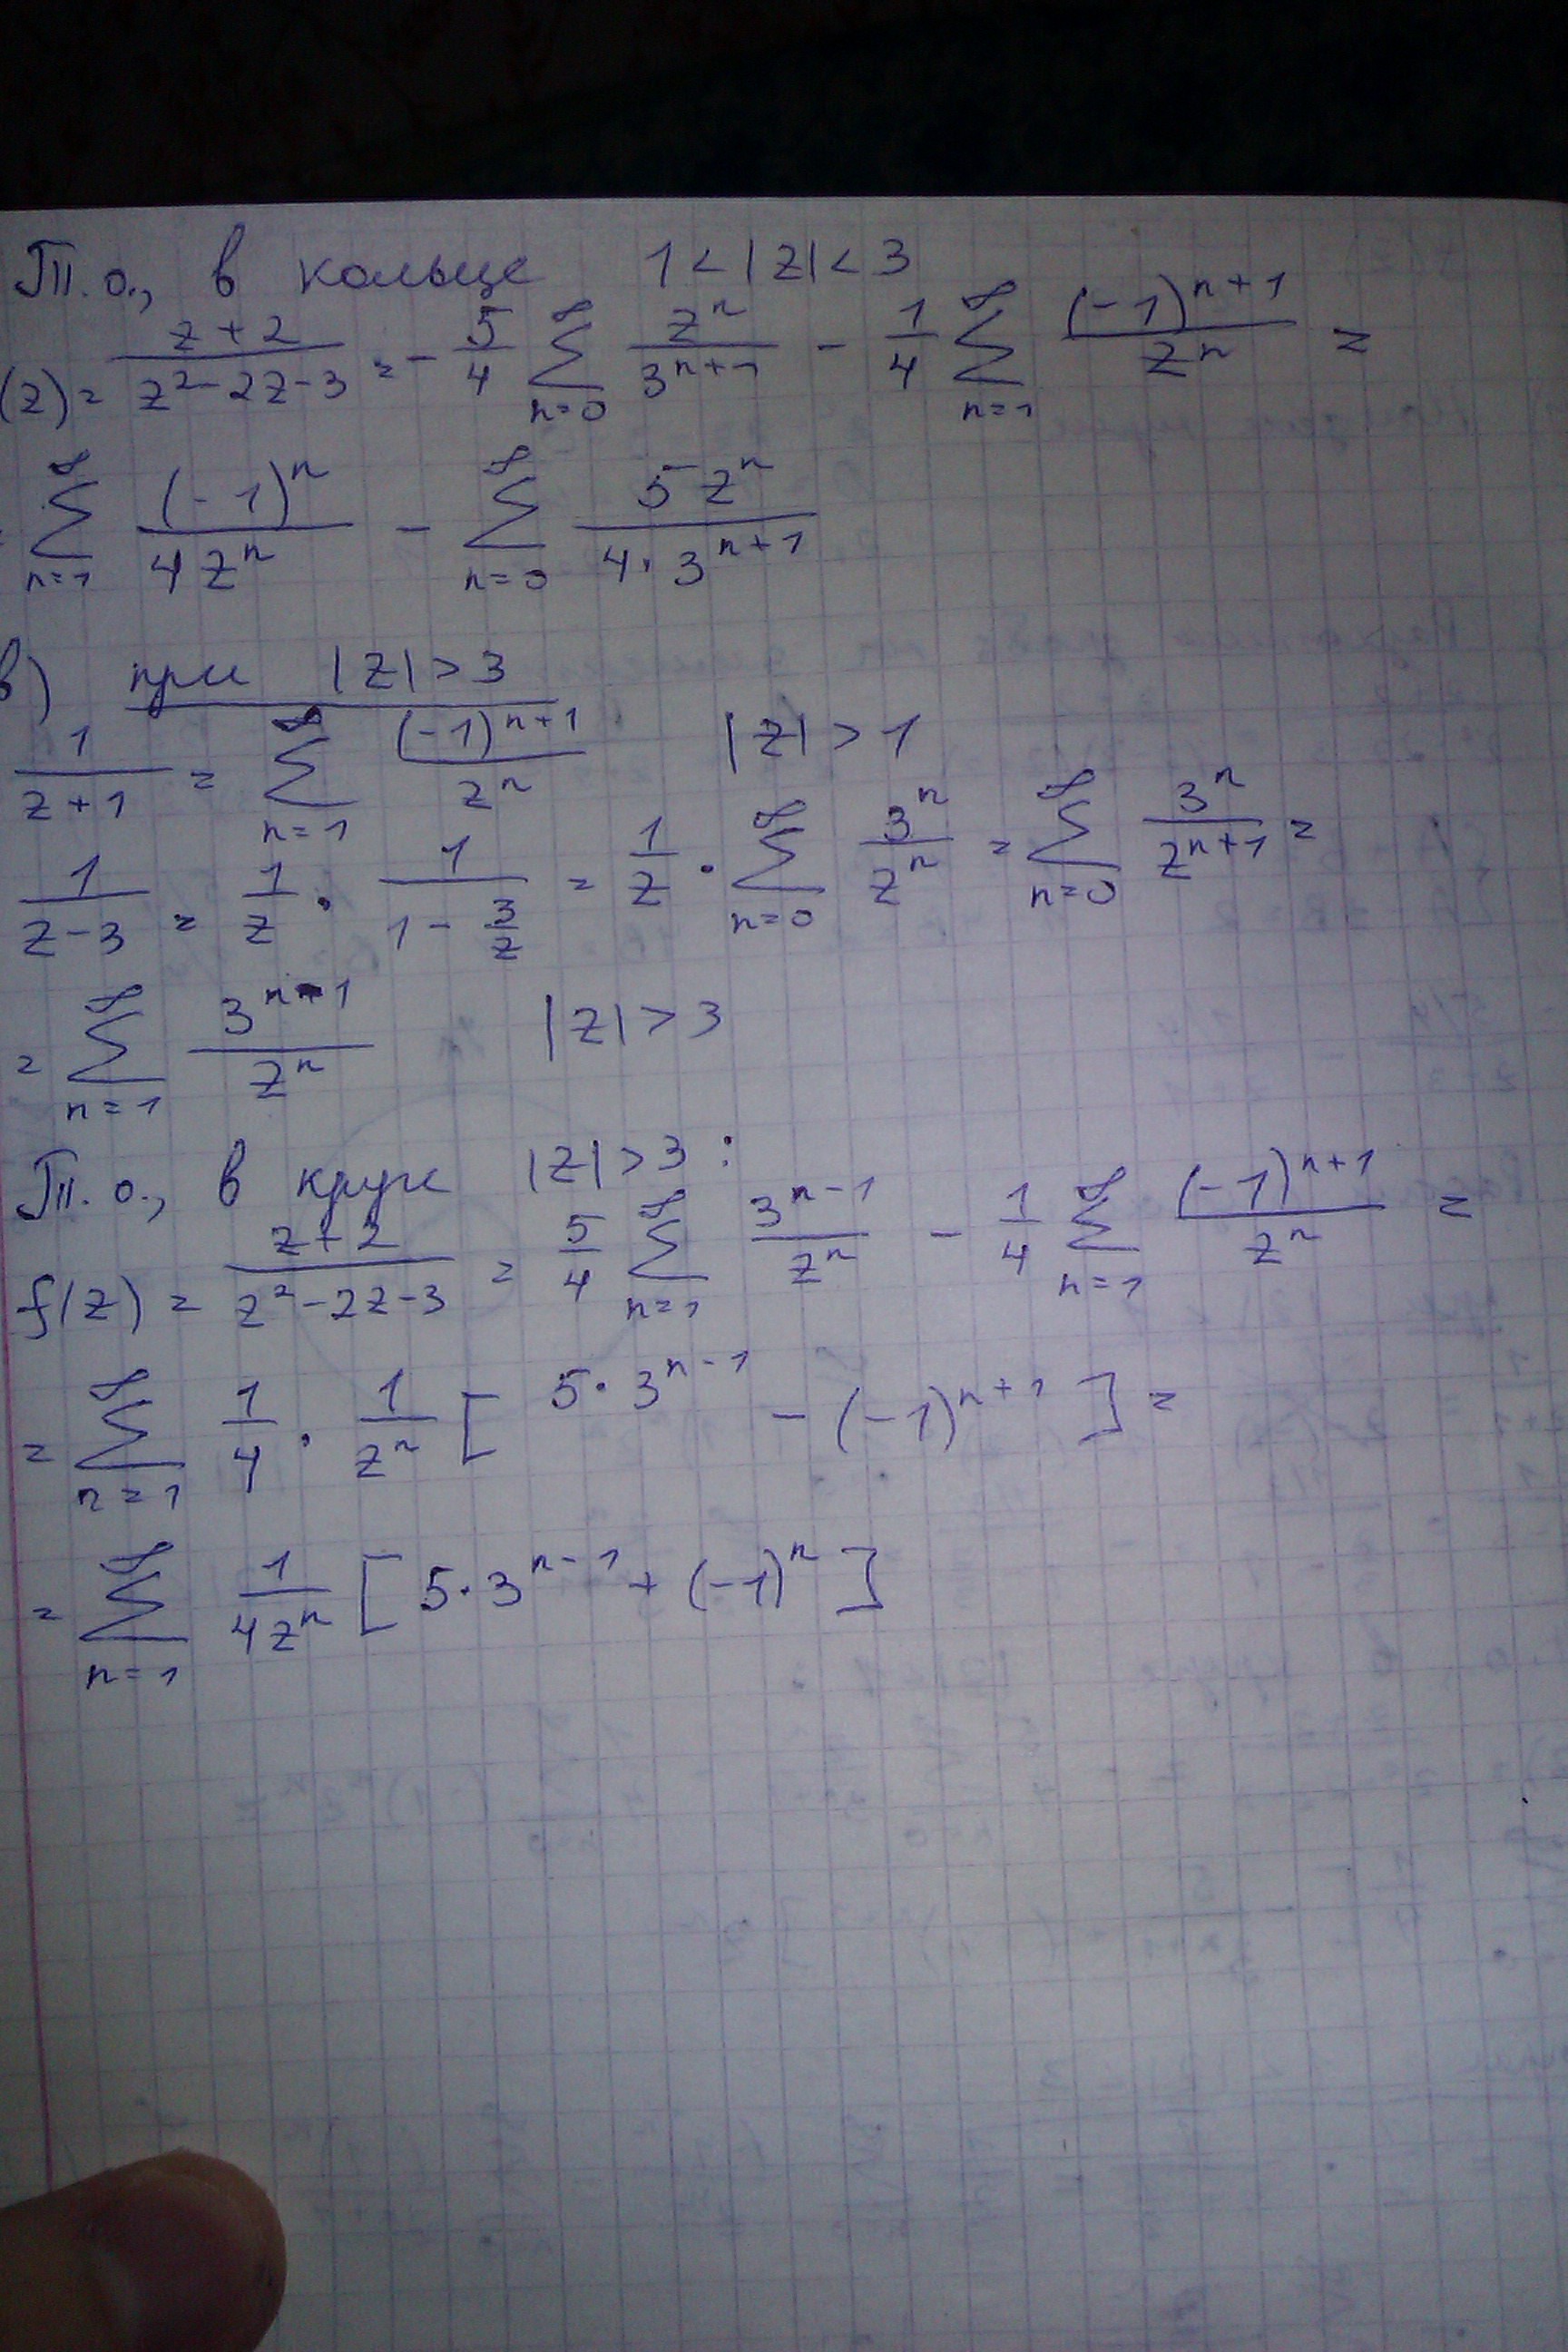 Т.о., в кольце 1<|z|<3
(z) = \frac{z+2}{z^2-2z-3} = -\frac{5}{4} \sum_{n=0}^{\infty} \frac{z^n}{3^{n+1}} - \frac{1}{4} \sum_{n=1}^{\infty} \frac{(-1)^{n+1}}{z^n} =
\sum_{n=1}^{\infty} \frac{(-1)^n}{4z^n} - \sum_{n=0}^{\infty} \frac{5z^n}{4·3^{n+1}}
в) при |z|>3
\frac{1}{z+1} = \sum_{n=1}^{\infty} \frac{(-1)^{n+1}}{z^n} |z|>1
\frac{1}{z-3} = \frac{1}{z} · \frac{1}{1-\frac{3}{z}} = \frac{1}{z} · \sum_{n=0}^{\infty} \frac{3^n}{z^n} = \sum_{n=0}^{\infty} \frac{3^n}{z^{n+1}} =
= \sum_{n=1}^{\infty} \frac{3^{n-1}}{z^n} |z|>3
Т.о., в круге |z|>3:
f(z) = \frac{z+2}{z^2-2z-3} = \frac{5}{4} \sum_{n=1}^{\infty} \frac{3^{n-1}}{z^n} - \frac{1}{4} \sum_{n=1}^{\infty} \frac{(-1)^{n+1}}{z^n} =
= \sum_{n=1}^{\infty} \frac{1}{4} · \frac{1}{z^n} [5·3^{n-1} - (-1)^{n+1}] =
= \sum_{n=1}^{\infty} \frac{1}{4z^n} [5·3^{n-1} + (-1)^n]